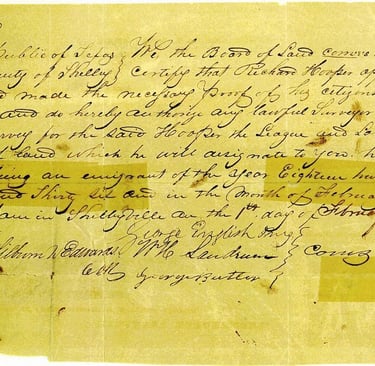 public of Texas } We the Board of Land comm
unty of Shelby } certify that Richard Hooper ap
d made the necessary proof of his citizens
and do hereby authorize any lawful Surveyor
rvey for the said Hooper the League and La
of land which he will designate to you. h
eing an emigrant of the year Eighteen hun
and Thirty six and in the month of Februa
eam in Shelbyville on the 1st day of Febru
George English
Wilborn N Edwards } W H Landrum } Coms
George Butler }